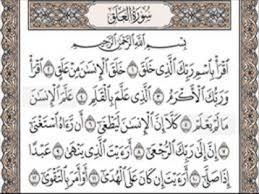 سُورَةُ العَلَقِ
بِسْمِ اللَّهِ الرَّحْمَٰنِ الرَّحِيمِ
اقْرَأْ بِاسْمِ رَبِّكَ الَّذِي خَلَقَ ١ خَلَقَ الْإِنسَانَ مِنْ عَلَقٍ ٢ اقْرَأْ
وَرَبُّكَ الْأَكْرَمُ ٣ الَّذِي عَلَّمَ بِالْقَلَمِ ٤ عَلَّمَ الْإِنسَانَ
مَا لَمْ يَعْلَمْ ٥ كَلَّا إِنَّ الْإِنسَانَ لَيَطْغَىٰ ٦ أَن رَّآهُ اسْتَغْنَىٰ
٧ إِنَّ إِلَىٰ رَبِّكَ الرُّجْعَىٰ ٨ أَرَأَيْتَ الَّذِي يَنْهَىٰ ٩ عَبْدًا
إِذَا صَلَّىٰ ١٠ أَرَأَيْتَ إِن كَانَ عَلَى الْهُدَىٰ ١١ أَوْ أَمَرَ بِالتَّقْوَىٰ ١٢